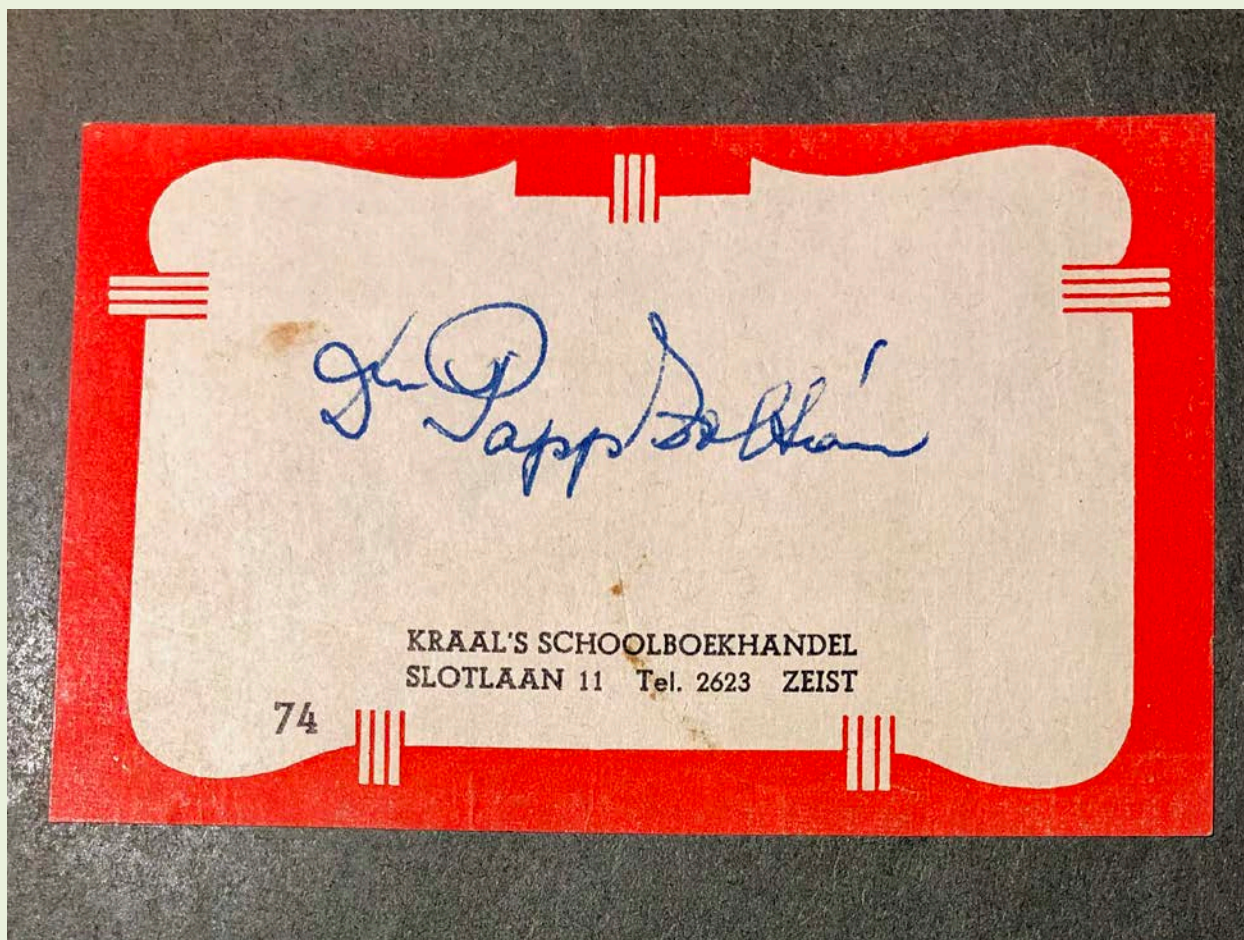 Dr Papp Zoltán
KRAAL'S SCHOOLBOEKHANDEL
SLOTLAAN 11 Tel. 2623 ZEIST
74